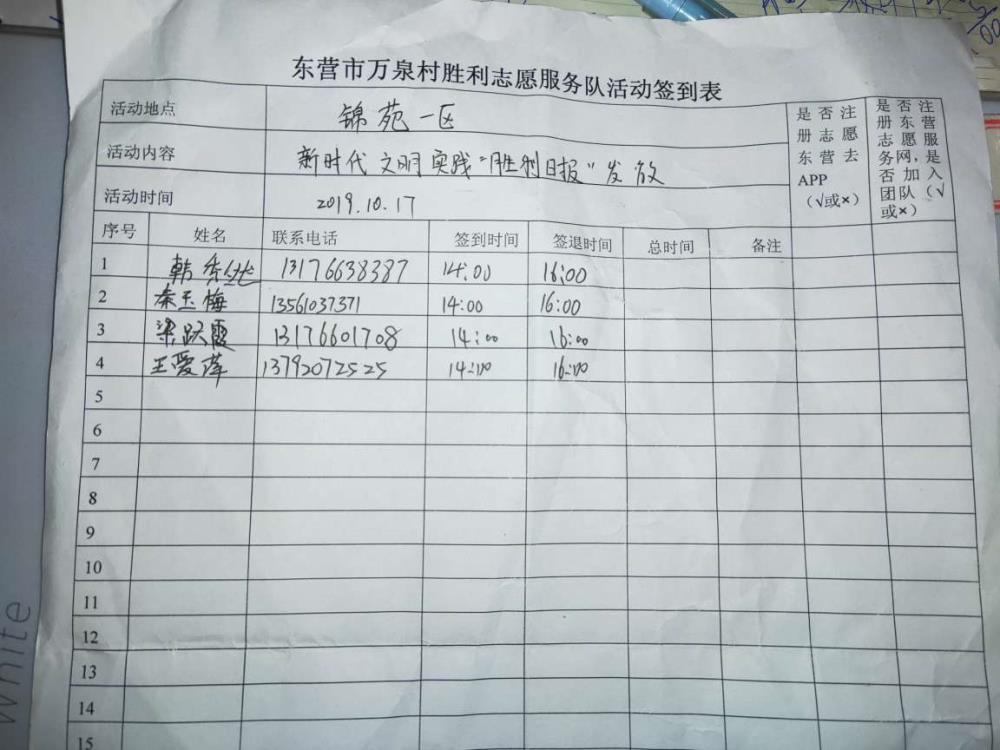 东营市万泉村胜利志愿服务队活动签到表
活动地点 锦苑一区
活动内容 新时代文明实践"胜利日报"发放
活动时间 2019.10.17
是否注册志愿东营去APP(√或×)
是否注册东营志愿服务网,是否加入团队(√或×)
序号 姓名 联系电话 签到时间 签退时间 总时间 备注
1 韩秀 13176638387 14:00 16:00
2 秦玉梅 13561037371 14:00 16:00
3 梁跃霞 13176601708 14:00 16:00
4 王爱萍 13792072525 14:00 16:00
5
6
7
8
9
10
11
12
13
14
15
White